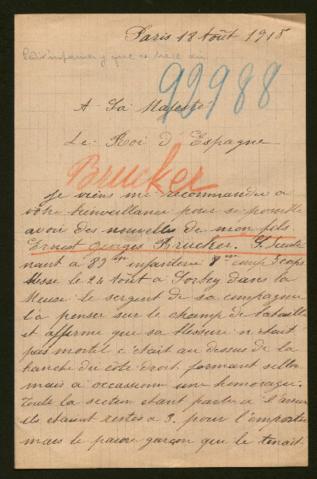 Paris 18 Août 1915
93988
A Sa Majesté
Le Roi d'Espagne
Brucker
Je viens me recommander a
votre bienveillance pour se possible
avoir des nouvelles de mon fils
Ernest Georges Brucker. S. Lieute
nant a 89 infanterie 8 comp
blesse le 24 Aout a dans la
Meuse le sergent de sa compagnie
l'a penser sur le champ de bataille
et affirme que sa blessure n'etait
pas mortel c'etait au dessus de la
hanche du côte droit, formant
mais a occasionne une homoragie.
Toute la section etant partie a l'assau
ils etaient restes a 3. pour l'emporter
mais le pauvre garçon que le tenait